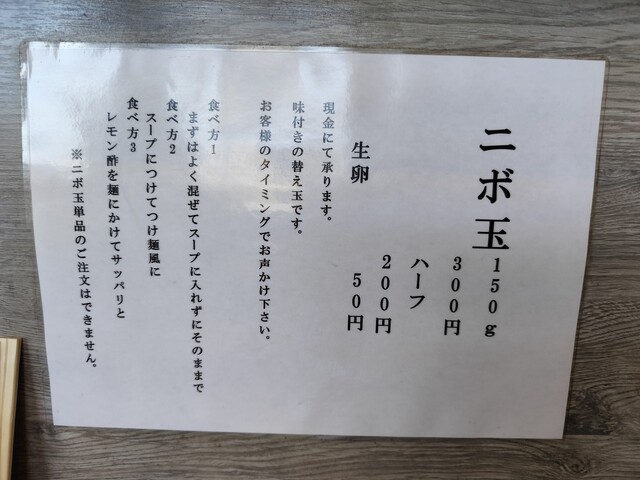 ニボ玉
150g
300円
ハーフ
200円
生卵 50円
現金にて承ります。
味付きの替え玉です。
お客様のタイミングでお声かけ下さい。
食べ方1
まずはよく混ぜてスープに入れずにそのままで
食べ方2
スープにつけてつけ麺風に
食べ方3
レモン酢を麺にかけてサッパリと
※ニボ玉単品のご注文はできません。